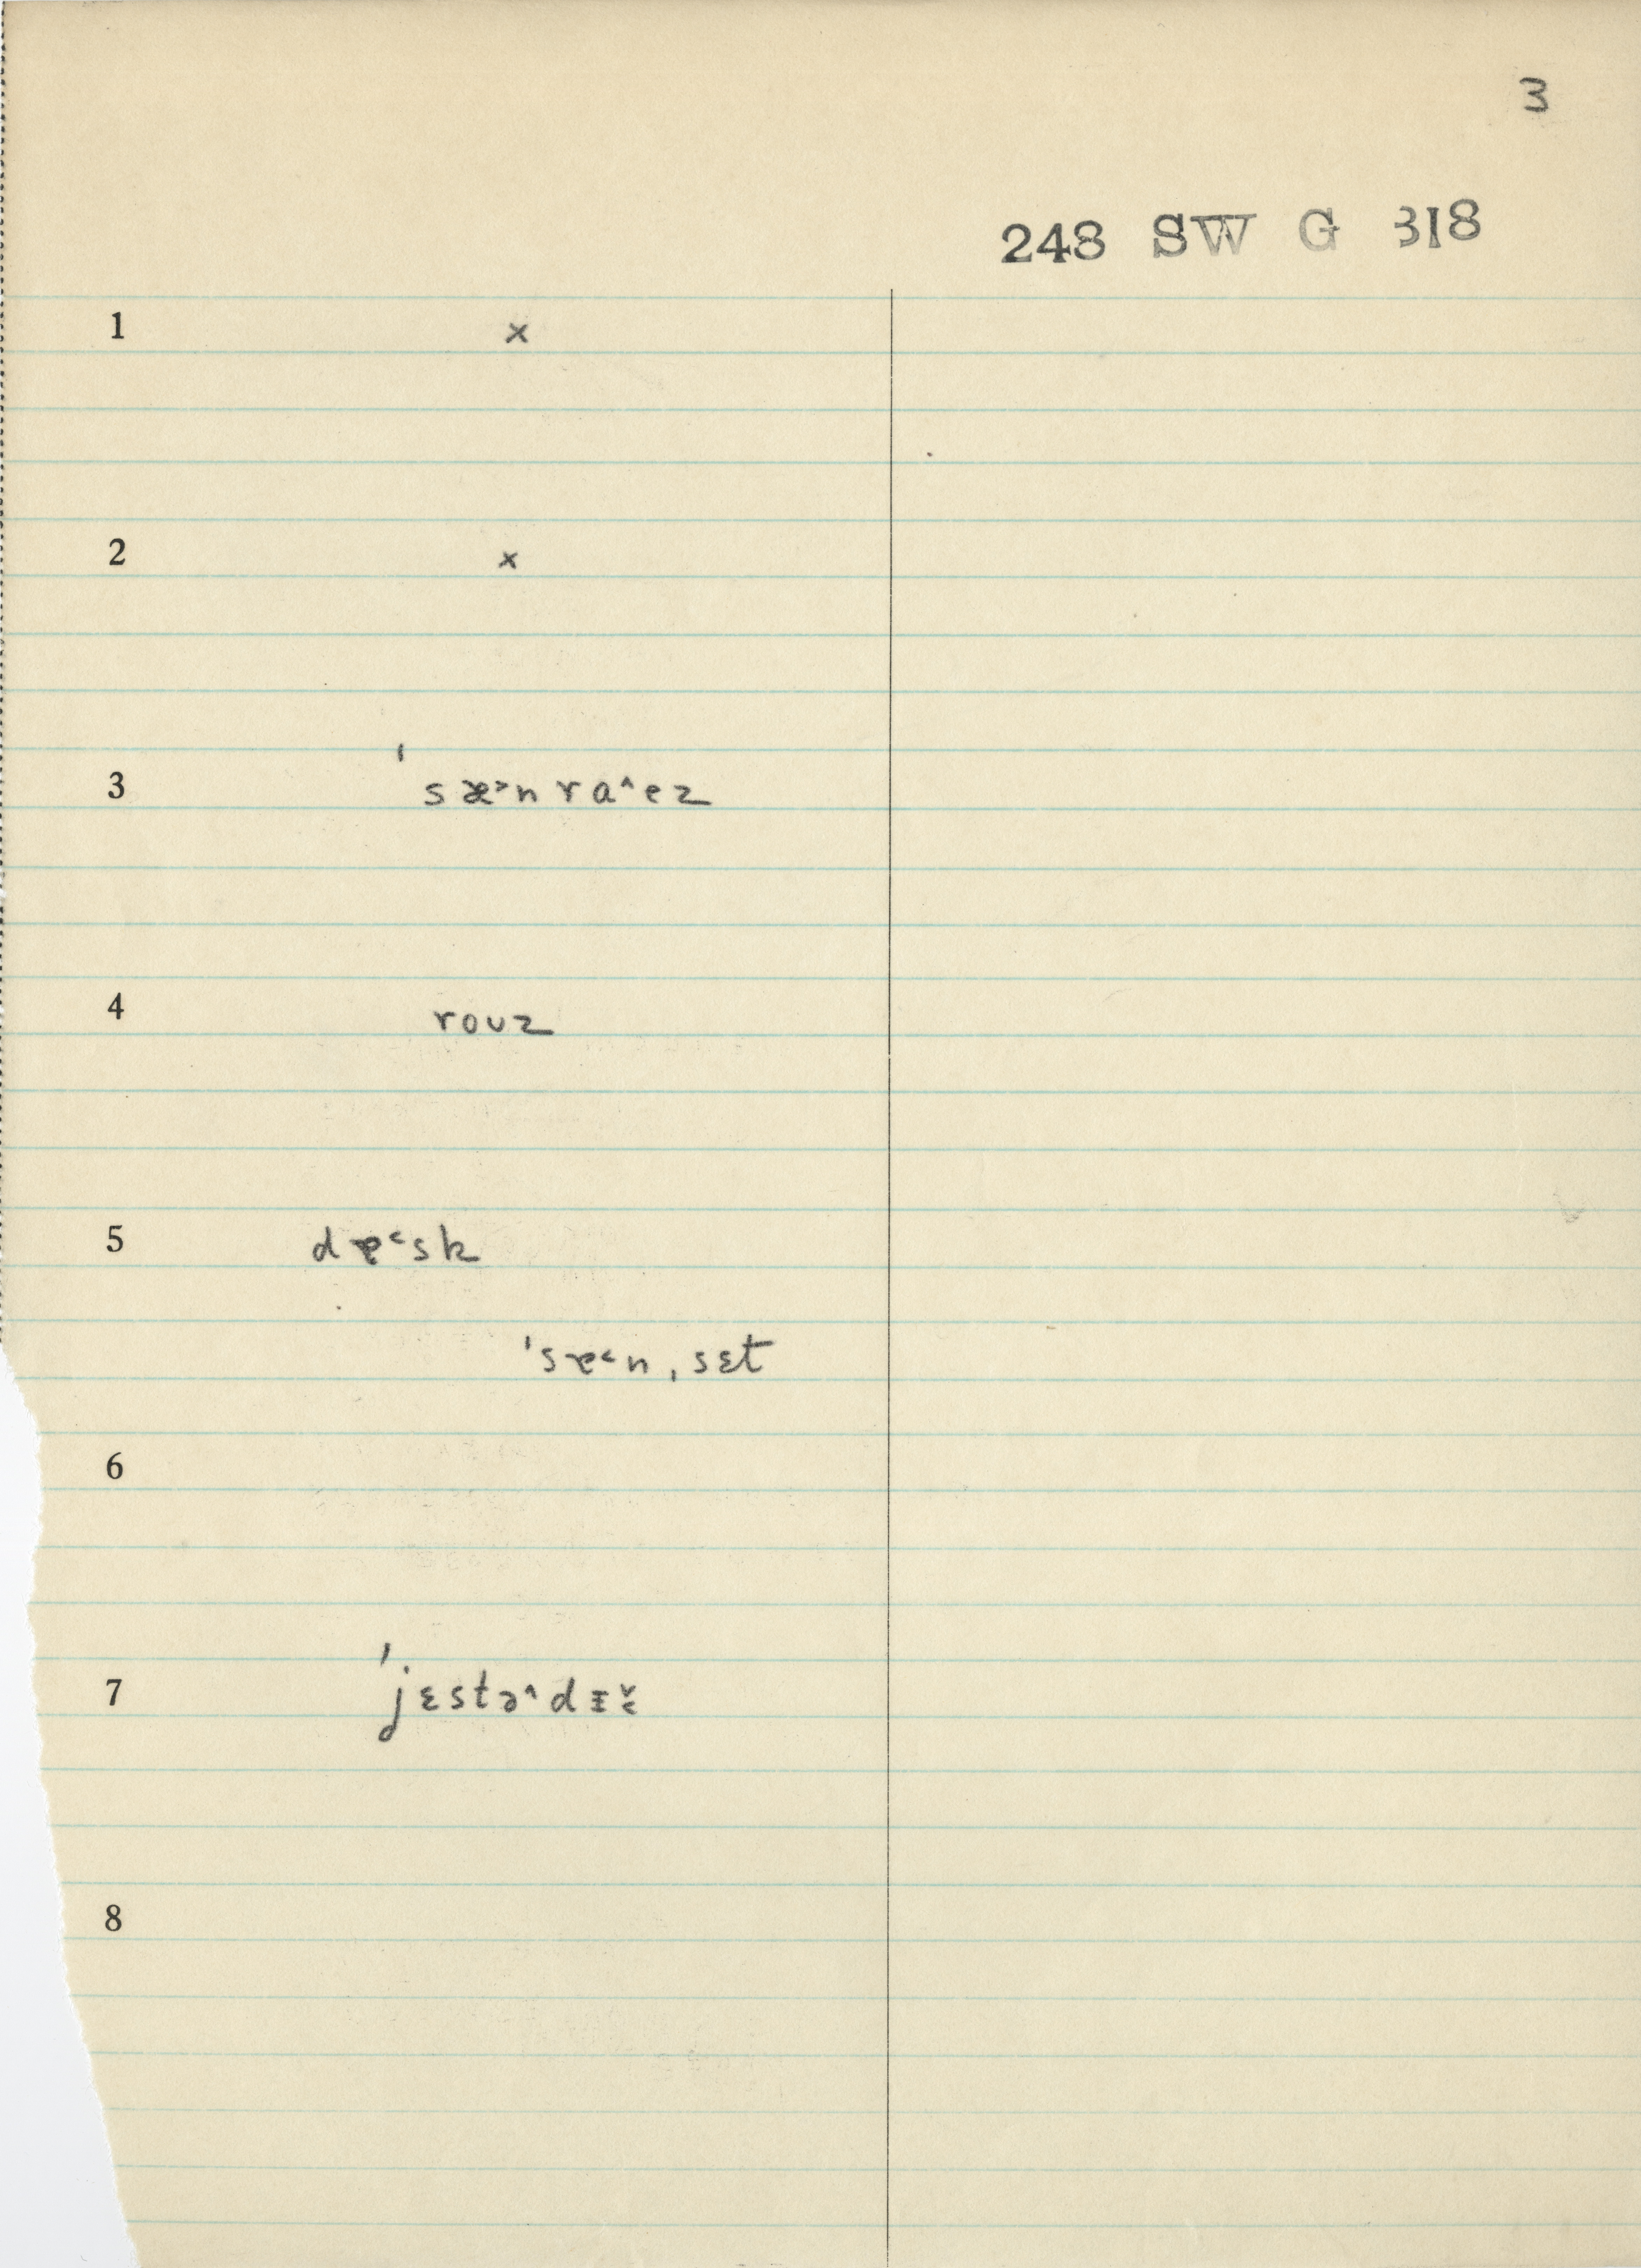 3
248 SW G 318
1 x
2 x
3 ˈsæ˃nra˄ez
4 rouz
5 dɐ˂sk
ˈsɐ˂nˌsɛt
6
7 ˈjɛstə˄dɪɛ̌
8